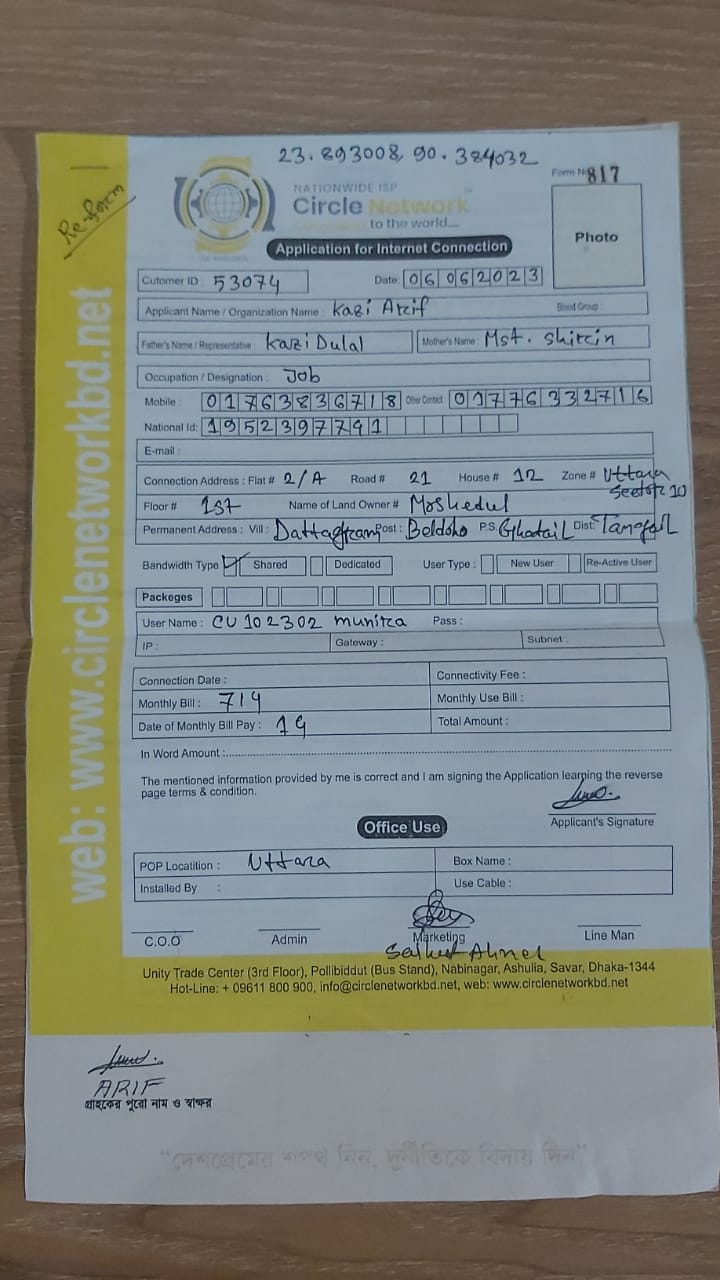 23.893008, 90.384032
Form No 817
Re-form
NATIONWIDE ISP
Circle Network
to the world...
Photo
Application for Internet Connection
Cutomer ID : 53074 Date: 06062023
Applicant Name / Organization Name : Kazi Arif Blood Group :
Father's Name / Representative : Kazi Dulal Mother's Name : Mst. Shirin
Occupation / Designation : Job
Mobile : 01763836718 Other Contact : 01776332716
National Id: 1952397791
E-mail :
Connection Address : Flat # 2/A Road # 21 House # 12 Zone # Uttara Sector 10
Floor # 1st Name of Land Owner # Morshedul
Permanent Address : Vill : Dattagram Post : P.S. Ghatail Dist: Tangail
Bandwidth Type Shared Dedicated User Type : New User Re-Active User
Packeges
User Name : CU102302 munira Pass :
IP : Gateway : Subnet :
Connection Date : Connectivity Fee :
Monthly Bill : 714 Monthly Use Bill :
Date of Monthly Bill Pay : 19 Total Amount :
In Word Amount :
The mentioned information provided by me is correct and I am signing the Application learning the reverse
page terms & condition.
Applicant's Signature
Office Use
POP Locatition : Uttara Box Name :
Installed By : Use Cable :
C.O.O Admin Marketing Line Man
Saikat Ahmed
Unity Trade Center (3rd Floor), Pollibiddut (Bus Stand), Nabinagar, Ashulia, Savar, Dhaka-1344
Hot-Line: + 09611 800 900, info@circlenetworkbd.net, web: www.circlenetworkbd.net
web: www.circlenetworkbd.net
ARIF
গ্রাহকের পুরো নাম ও স্বাক্ষর
"দেশপ্রেমের শপথ নিন, দুর্নীতিকে বিদায় দিন"